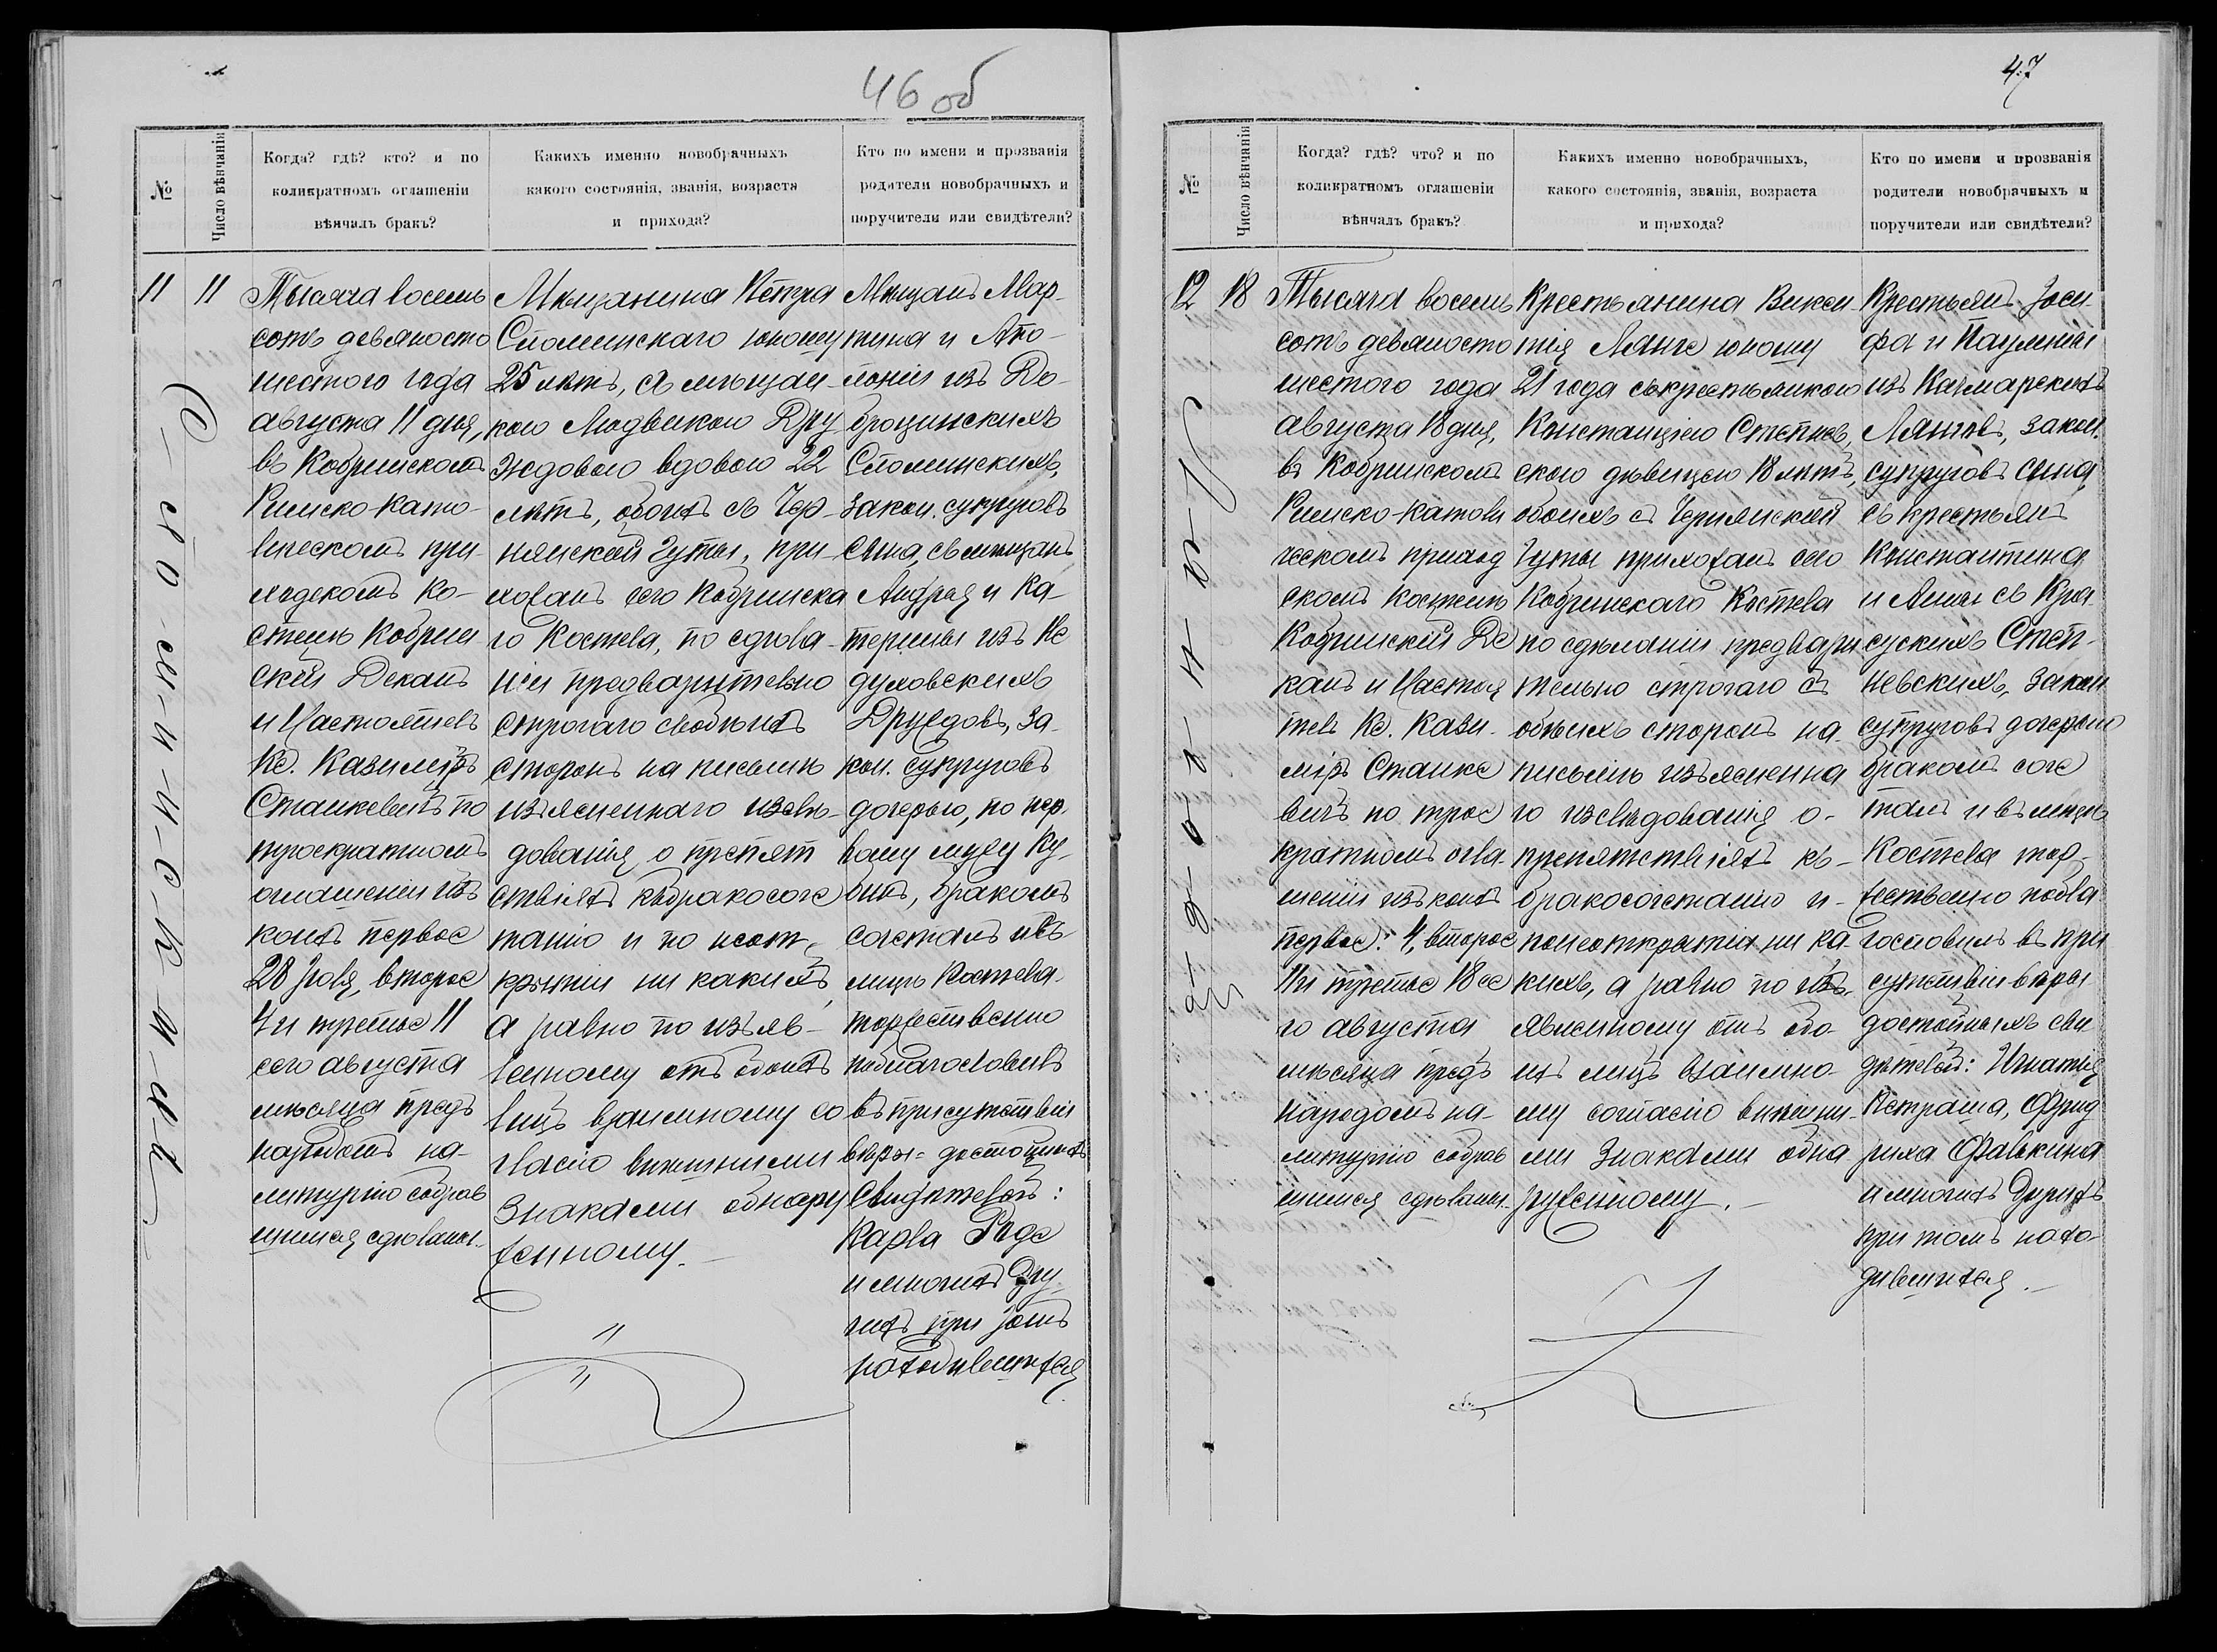 46 об
№
Число вѣнчанія
Когда? гдѣ? кто? и по
коликратномъ оглашеніи
вѣнчалъ бракъ?
Какихъ именно новобрачныхъ
какого состоянія, званія, возраста
и прихода?
Кто по имени и прозванія
родители новобрачныхъ и
поручители или свидѣтели?
11
11
Тысяча восемь
сотъ девяносто
шестого года
августа 11 дня,
въ Кобринскомъ
Римско-Като-
лическомъ при-
ходскомъ Ко-
стелѣ Кобрин
скій Деканъ
и Настоятель
Кс. Казиміръ
Станкевичъ по
троекратномъ
оглашеніи изъ
коихъ первое
28 Іюля, второе
4 и третье 11
сего августа
мѣсяца предъ
народомъ на
литургію собрав
шимся сдѣланы.
Мѣщанина Петра
Споминскаго юношу
25 лѣтъ, съ мѣщан-
кою Людвикою Дру
ждовою вдовою 22
лѣтъ, обоихъ съ Чер-
нянской Гуты, при-
хожанъ сего Кобринска
го Костела, по сдѣла-
ніи предварительно
строгаго съ обѣихъ
сторонъ на письмѣ
изъясненнаго изслѣ-
дованія, о препят
ствіяхъ къ бракосоче
танію и по неот-
крытіи ни какихъ,
а равно по изъяв-
ленному отъ обоихъ
лицъ взаимному со
гласію внѣшними
знаками обнару
женному.
Мѣщанъ Мар-
тина и Апо-
лоніи изъ До-
броцинскихъ
Споминскихъ,
закон. супруговъ
сына, съ мѣщанъ
Андрея и Ка-
терины изъ Не
духовскихъ
Друждовъ, за-
кон. супруговъ
дочерью, по пер-
вому мужу Ку-
бикъ, бракомъ
сочеталъ и въ
лицѣ Костела
торжественно
поблагословилъ
въ присутствіи
вѣры-достойныхъ
свидѣтелей:
Карла Роде
и многихъ дру-
гихъ при томъ
находившихся
С-по-м-и-н-с-к-и-хъ
47
№
Число вѣнчанія
Когда? гдѣ? что? и по
коликратномъ оглашеніи
вѣнчалъ бракъ?
Какихъ именно новобрачныхъ,
какого состоянія, званія, возраста
и прихода?
Кто по имени и прозванія
родители новобрачныхъ и
поручители или свидѣтели?
12
18
Тысяча восемь
сотъ девяносто
шестого года
августа 18 дня,
въ Кобринскомъ
Римско-католи
ческомъ приход
скомъ костелѣ
Кобринскій Де
канъ и Настоя
тель Кс. Кази-
міръ Станке
вичъ по трое
кратномъ огла-
шеніи изъ коихъ
первое: 4, второе
11 и третье 18 се
го августа
мѣсяца предъ
народомъ на
литургію собрав
шимся сдѣланы.
Крестьянина Викен-
тія Лянге юношу
21 года съ крестьянкою
Констанціею Степнев-
скою дѣвицею 18 лѣтъ,
обоихъ съ Чернянской
Гуты прихожанъ сего
Кобринскаго Костела
по сдѣланіи предвари
тельно строгаго съ
обѣихъ сторонъ на
письмѣ изъясненна
го изслѣдованія о-
препятствіяхъ къ-
бракосочетанію и-
понеоткрытіи ни ка-
кихъ, а равно по изъ-
явленному отъ обо-
ихъ лицъ взаимно-
му согласію внѣшни-
ми знаками обна
руженному.
Крестьянъ Іоси-
фа и Паулины
изъ Качмарскихъ
Лянговъ, закон.
супруговъ сына
съ крестьянъ
Константина
и Анны съ Кра-
сускихъ Степ-
невскихъ, закон
супруговъ дочерью
бракомъ соче
талъ и въ лицѣ
Костела тор-
жественно побла
гословилъ въ при
сутствіи вѣры
достойныхъ сви
дѣтелей: Игнатія
Петраша, Фрид
риха Фалькина
и многихъ другихъ
при томъ нахо-
дившихся.